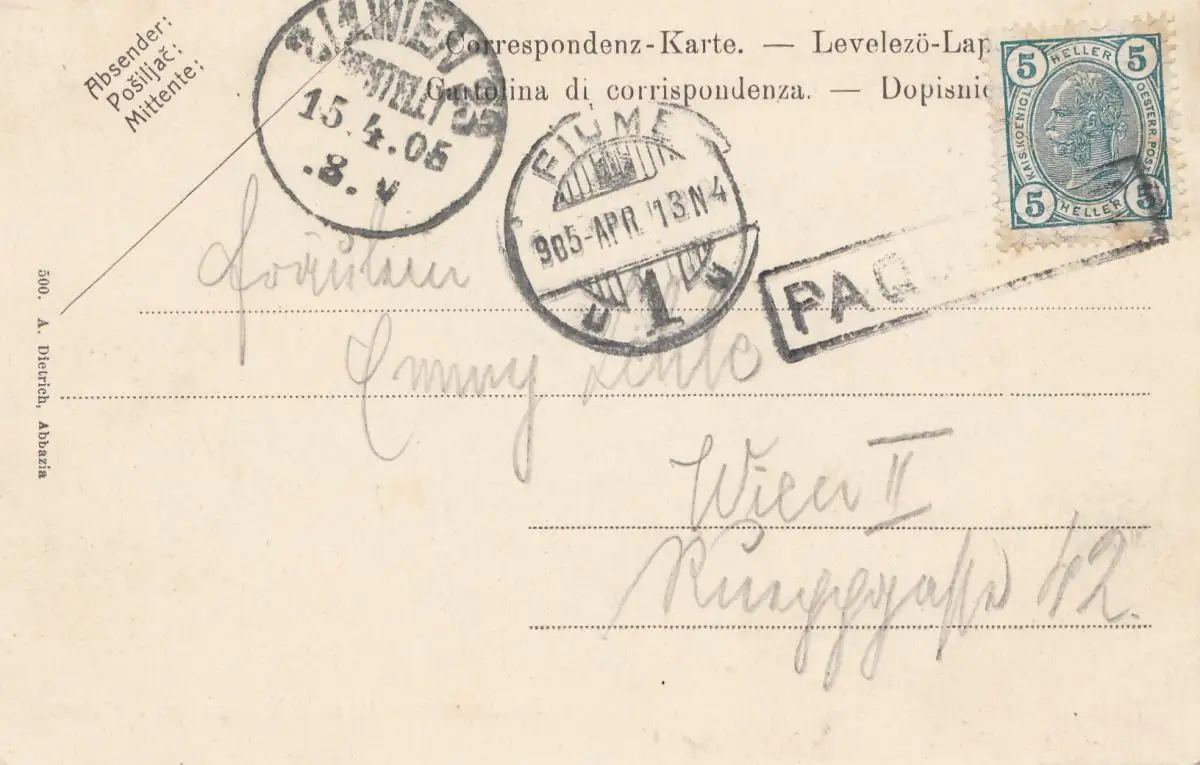 Absender:
Pošiljač:
Mittente:
Correspondenz-Karte. — Levelezö-Lap
Cartolina di corrispondenza. — Dopisnic
2/1 WIEN
BESTELLT
15.4.05
.8.V
FIUME
905-APR 13 N4
1
PAQ
5 HELLER 5
KAIS. KOENIGL. OESTERR. POST
5 HELLER 5
Fräulein
Emmy
Wien II
Rueppgasse 42.
500. A. Dietrich, Abbazia